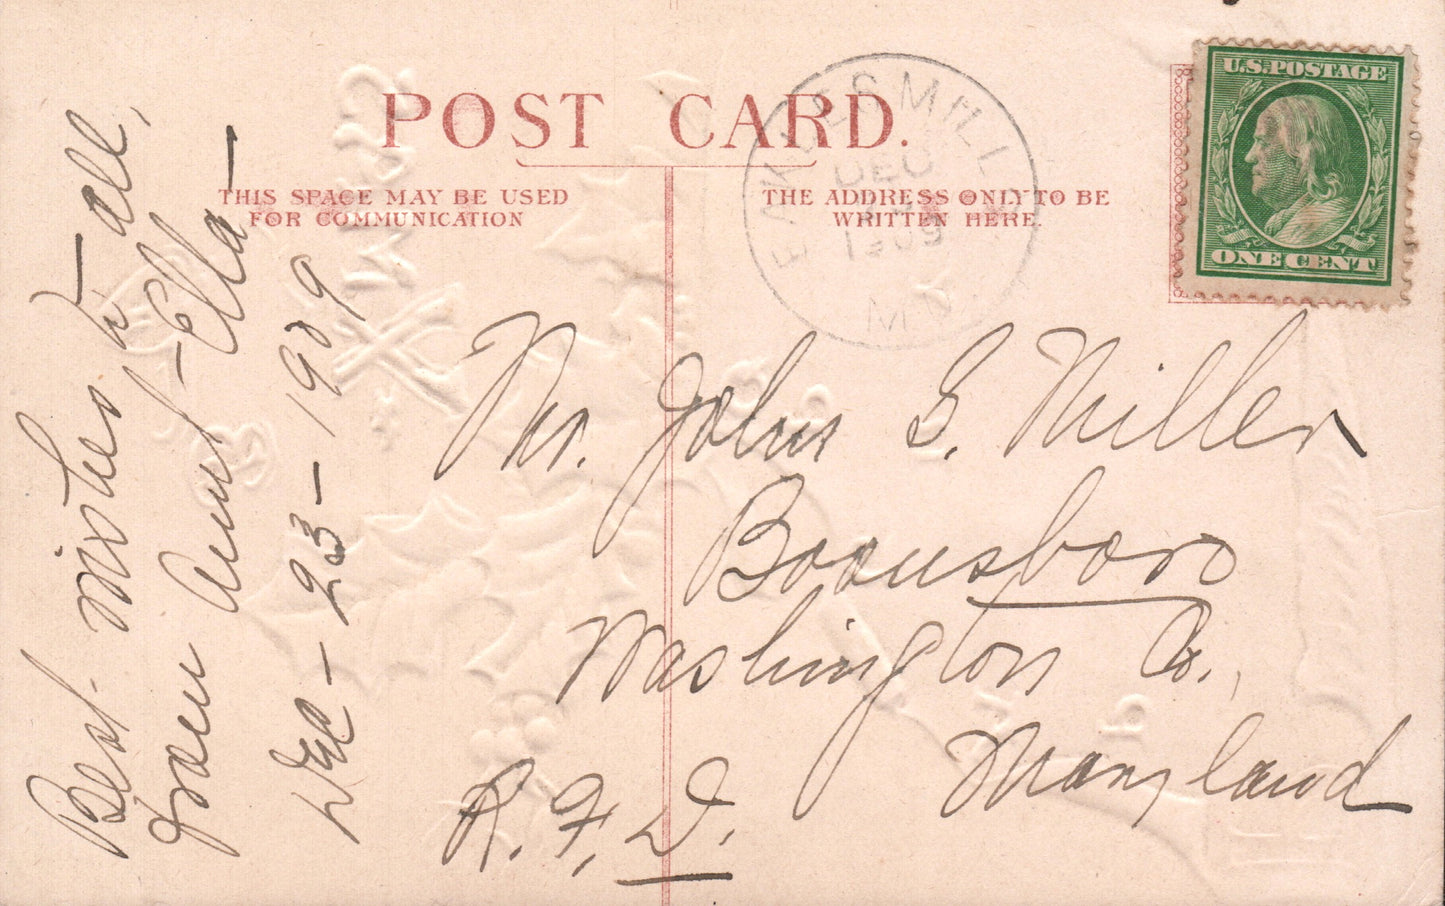 POST CARD.
THIS SPACE MAY BE USED
FOR COMMUNICATION
THE ADDRESS ONLY TO BE
WRITTEN HERE.
U.S. POSTAGE
ONE CENT
DEC
1909
MD.
Best wishes to all,
from Aunt - Ella -
Dec - 23 - 1909
Mr. John S. Miller
Boonsboro
Washington Co.,
Maryland
R. F. D.